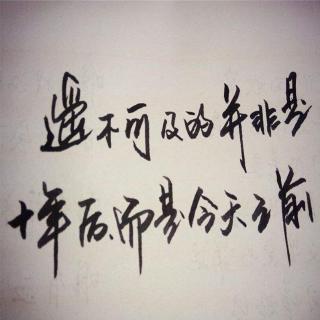 遥不可及的并非是
十年后,而是今天之前